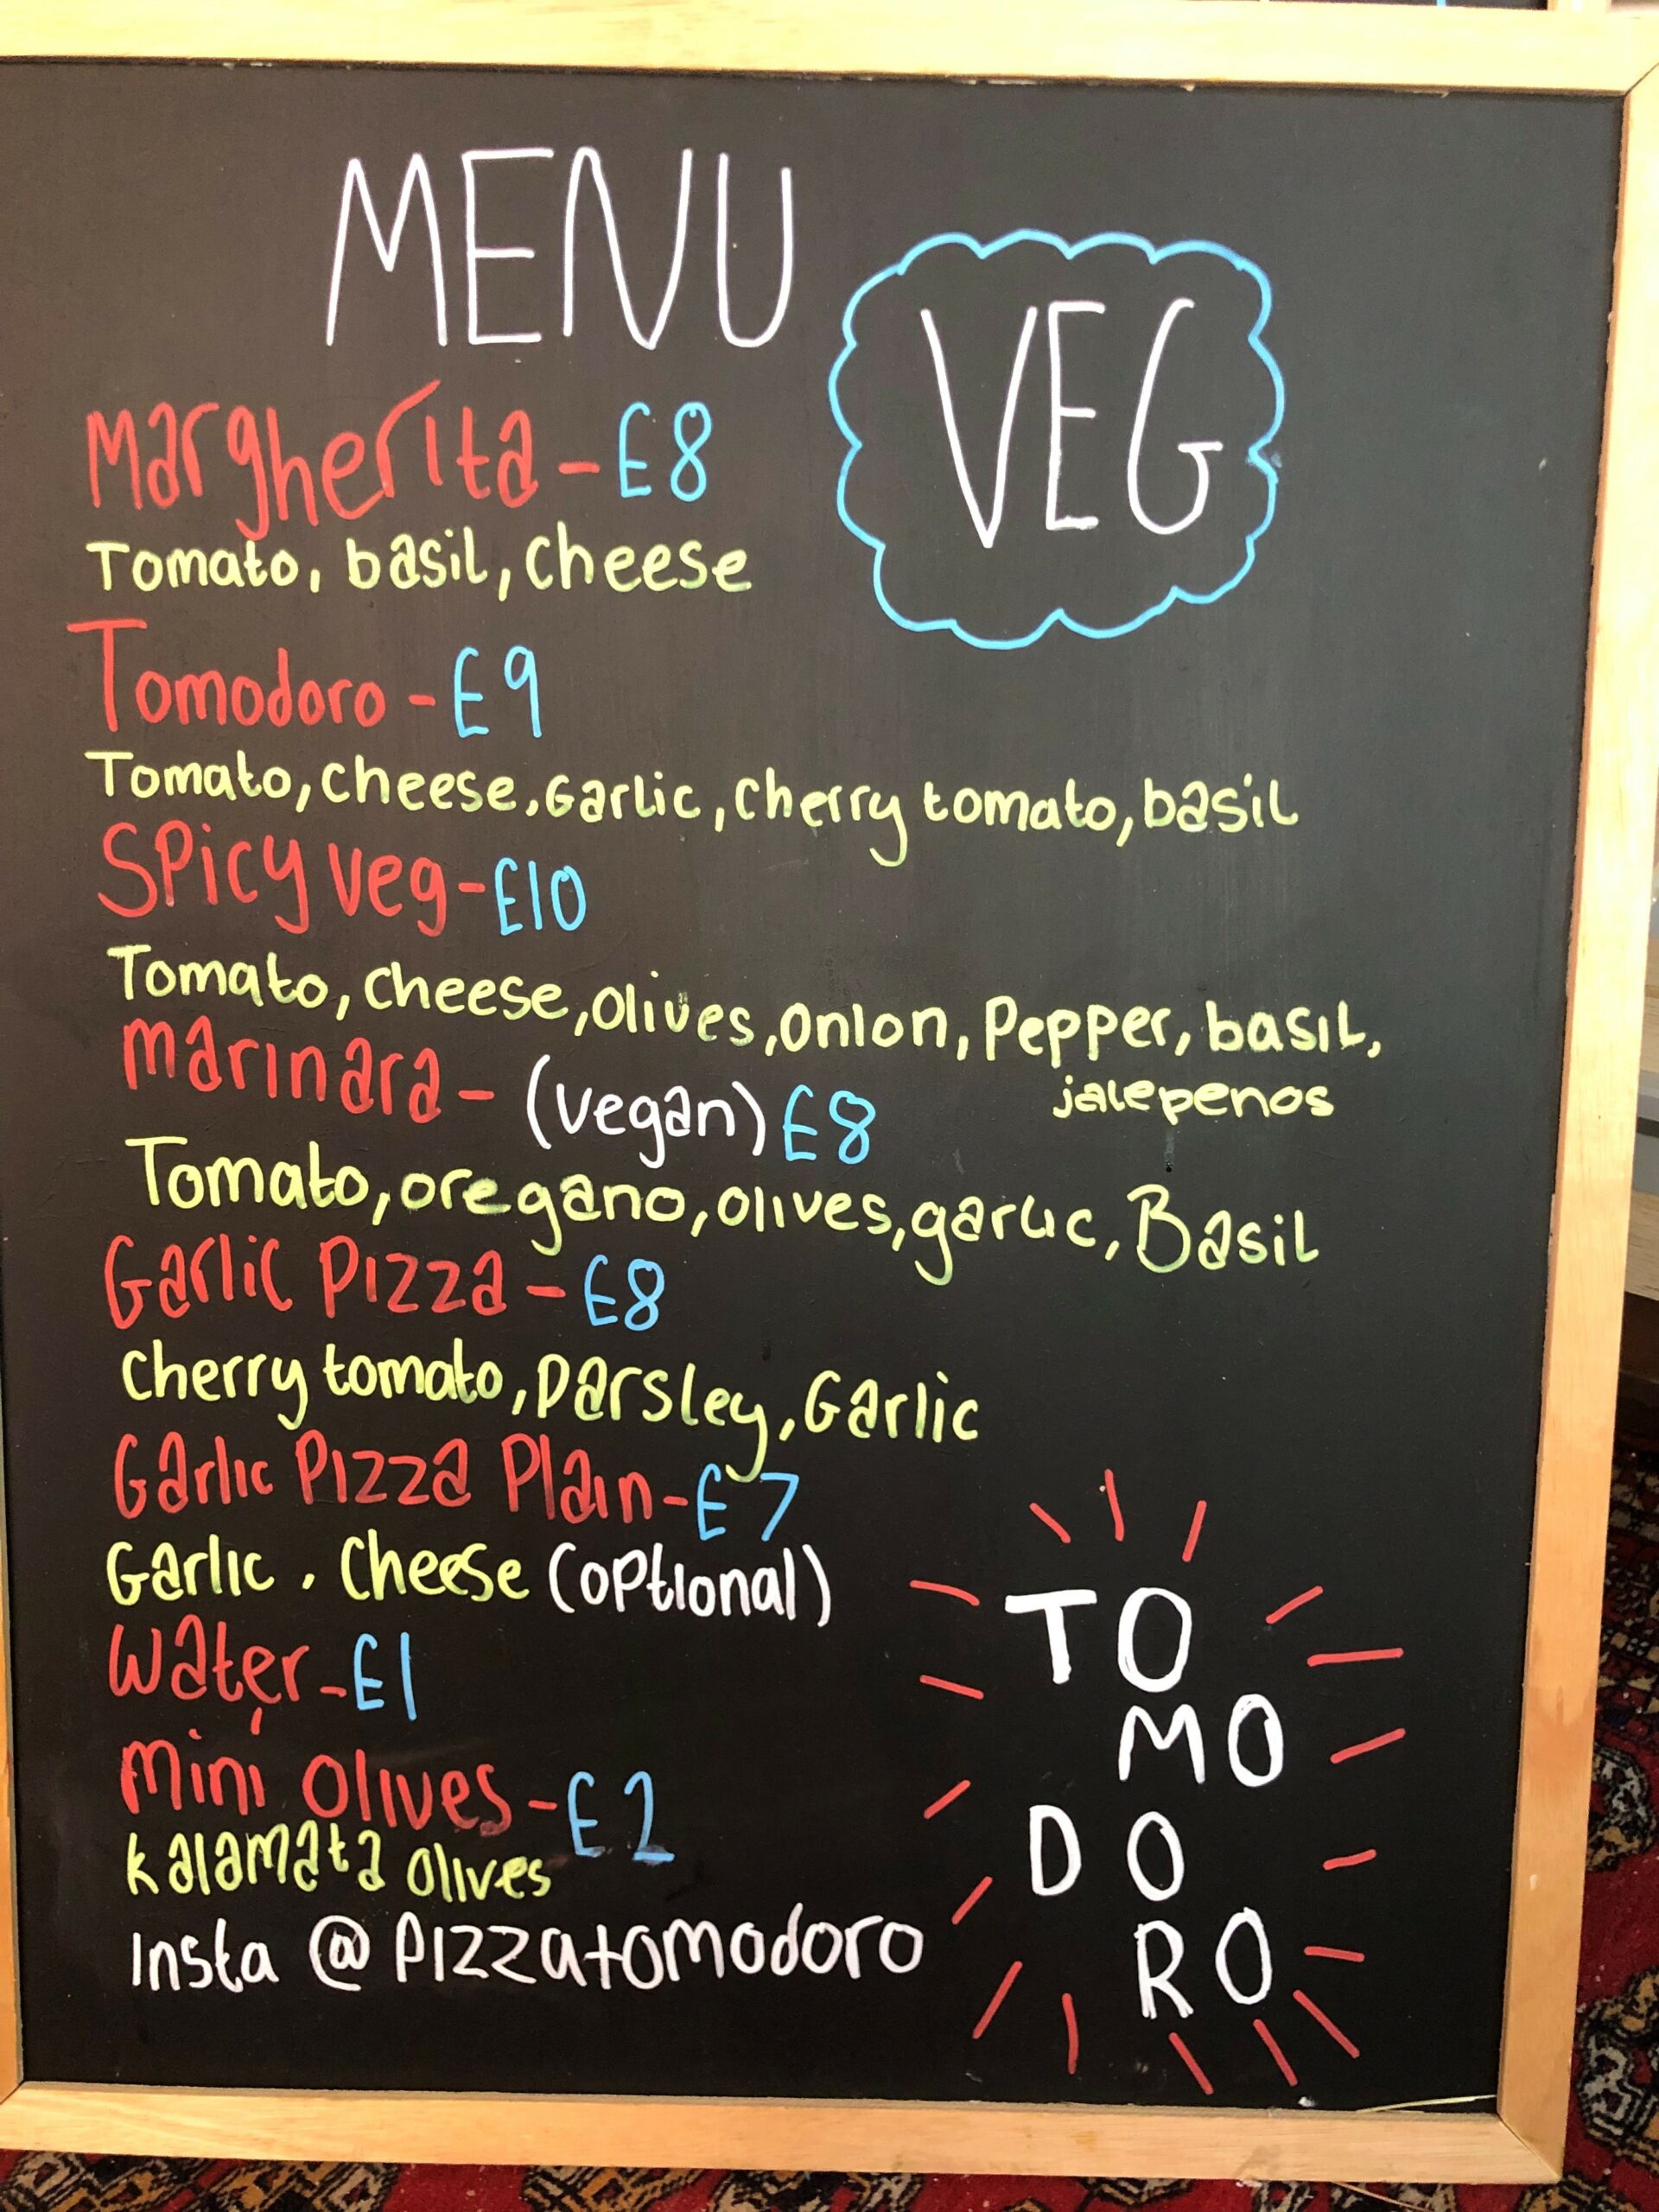 MENU
VEG
Margherita - £8
Tomato, basil, cheese
Tomodoro - £9
Tomato, cheese, Garlic, cherry tomato, basil
Spicy veg - £10
Tomato, cheese, olives, onion, Pepper, basil,
jalepenos
Marinara - (vegan) £8
Tomato, oregano, olives, garlic, Basil
Garlic Pizza - £8
Cherry tomato, parsley, Garlic
Garlic Pizza Plain - £7
Garlic, Cheese (optional)
Water - £1
Mini Olives - £2
Kalamata olives
Insta @ Pizzatomodoro
TO
MO
DO
RO